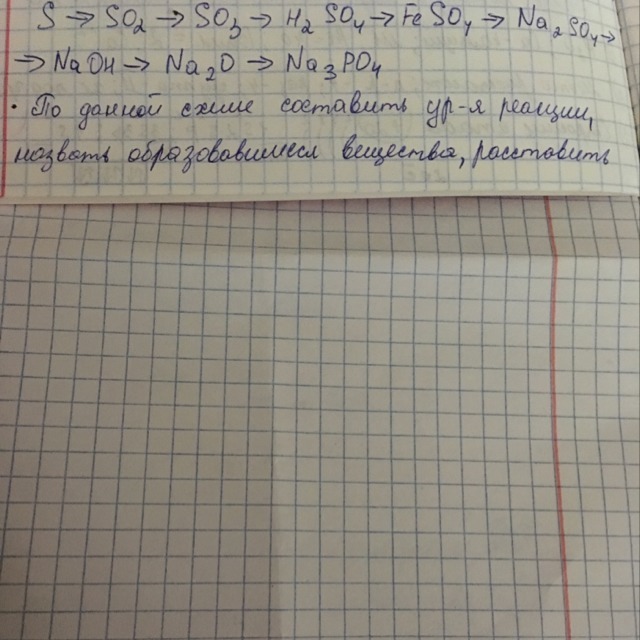 S → SO₂ → SO₃ → H₂SO₄ → FeSO₄ → Na₂SO₄ →
→ NaOH → Na₂O → Na₃PO₄
· По данной схеме составить ур-я реакции,
назвать образовавшиеся вещества, расставить